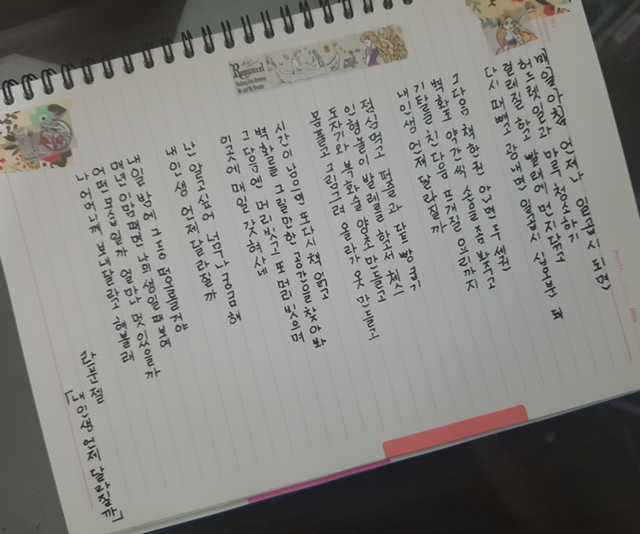 매일아침 언제나 일곱시 되면
허드렛일과 마루 청소하기
걸레질 하고 빨래에 먼지닦고
다시 때빼고 광내면 일곱시 십오분 돼
그 다음 책 한권 아니면 두세권
벽화로 약간씩 손을 좀 봐주고
기타를 친 다음 뜨개질 요리까지
내인생 언제 달라질까
점심먹고 퍼즐과 다트 빵굽기
인형놀이 발레를 하고서 체스
도자기와 복화술 양초 만들고
몸풀고 그림그려 올라가 옷 만들고
시간이 남으면 또다시 책 읽고
벽화들을 그릴만한 공간을 찾아봐
그 다음엔 머리빗고 또 머리 빗으며
이곳에 매일 갇혀사네
난 알고싶어 너무나 궁금해
내 인생 언제 달라질까
내일 밤에 그 등 떠오를거야
매년 이맘때면 나의 생일때 보여
어떤 모습일까 얼마나 멋있을까
나 어머니께 보내달라고 해볼래
라푼젤
「내 인생 언제 달라질까」
Rapunzel